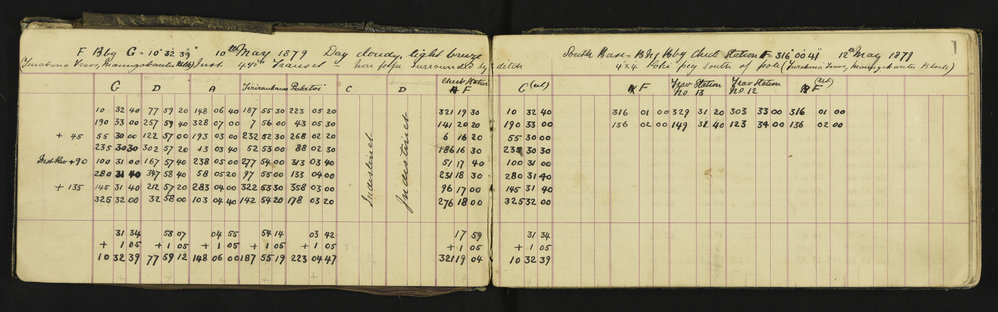 F Bbg G = 10° 32' 39" 10th May 1879 Day cloudy, light breeze
Inst 4½in Transit = Iron pipe surrounded by ditch
G D A Pukatoi C D Chck Station F G (ch)
10 32 40 77 59 20 148 06 40 187 55 30 223 05 20 321 19 30 10 32 40
190 33 00 257 59 40 328 07 00 7 56 00 43 05 30 141 20 20 190 33 00
+ 45 55 30 00 122 57 00 193 03 00 232 52 30 268 02 20 6 16 20 55 30 00
235 30 30 302 57 20 13 03 40 52 53 00 88 02 30 186 16 30 235 30 30
+90 100 31 00 167 57 40 238 05 00 277 54 00 313 03 40 51 17 40 100 31 00
280 31 40 347 58 40 58 05 20 97 55 00 133 04 00 231 18 30 280 31 40
+ 135 145 31 40 212 57 20 283 04 00 322 53 30 358 03 00 96 17 00 145 31 40
325 32 00 32 58 00 103 04 40 142 54 20 178 03 20 276 18 00 325 32 00
Indistinct Indistinct
31 34 58 07 04 55 54 14 03 42 17 59 31 34
+ 1 05 + 1 05 + 1 05 + 1 05 + 1 05 + 1 05 + 1 05
10 32 39 77 59 12 148 06 00 187 55 19 223 04 47 321 19 04 10 32 39
1
South Base = Bbg Chck Station F 316° 00' 41" 12th May 1879
4x4 Toho peg South of pole
F Trav Station No 13 Trav Station No. 12 F (ch)
316 01 00 329 31 20 303 33 00 316 01 00
136 02 00 149 31 40 123 34 00 136 02 00